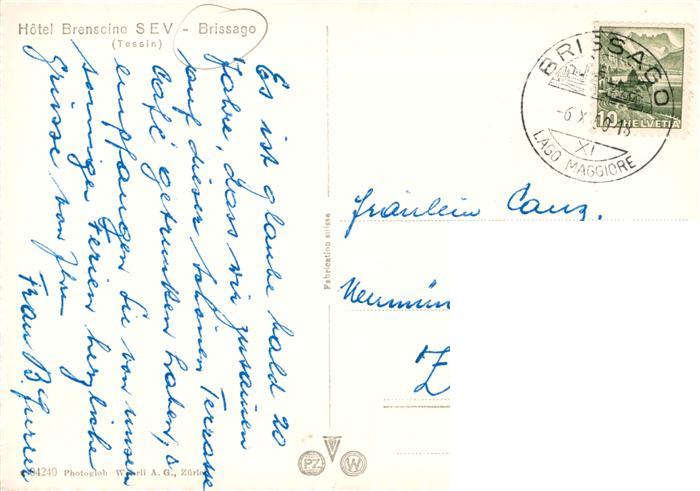 Hôtel Brenscino SEV - Brissago
(Tessin)
Es ist glaube bald 20
Jahre, dass wir zusammen
auf dieser schönen Terrasse
Café getrunken haben,
empfangen Sie von unsern
sonnigen Ferien herzliche
Grüsse von Ihrer
Frau B. Furrer
Fabrication suisse
BRISSAGO
-6 X
XI
LAGO MAGGIORE
10 HELVETIA
Fräulein Canz.
Neumün
Z
04240 Photoglob Wehrli A. G., Züri
PZ W